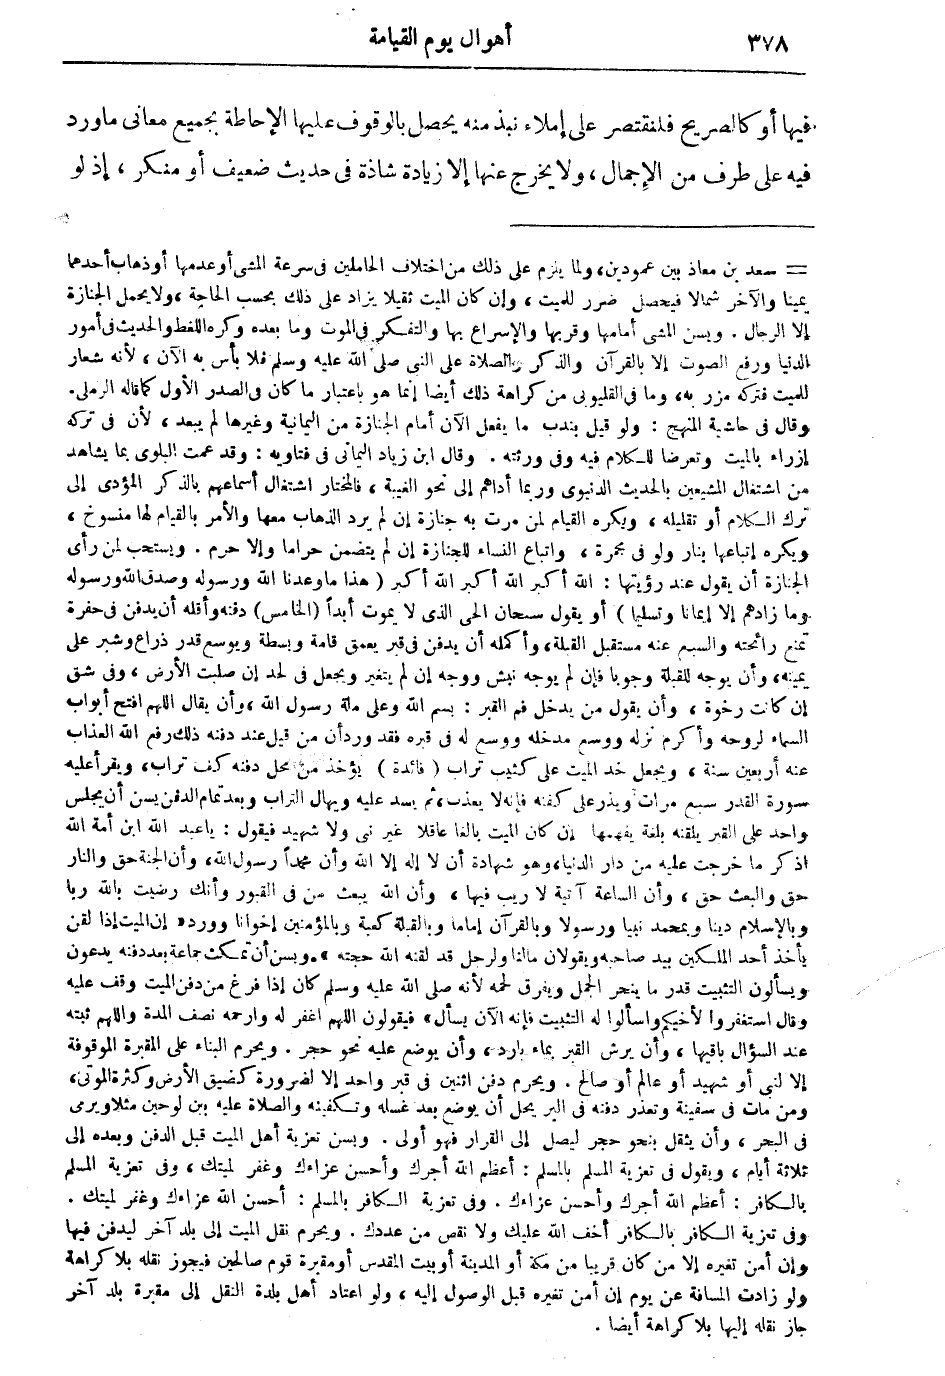 ٣٧٨
أهوال يوم القيامة
فيها أو كالصريح فلنقتصر على إملاء نبذ منه يحصل بالوقوف عليها الإحاطة بجميع معانى ماورد
فيه على طرف من الإجمال ، ولا يخرج عنها إلا زيادة شاذة فى حديث ضعيف أو منكر ، إذ لو
= سعد بن معاذ بين عمودين، ولما يلزم على ذلك من اختلاف الحاملين فى سرعة المشى أو عدمها أو ذهاب أحدهما
يمينا والآخر شمالا فيحصل ضرر للميت ، وإن كان الميت ثقيلا يزاد على ذلك بحسب الحاجة ، ولا يحمل الجنازة
إلا الرجال . ويسن المشى أمامها وقربها والإسراع بها والتفكر فى الموت وما بعده وكره اللغط والحديث فى أمور
الدنيا ورفع الصوت إلا بالقرآن والذكر والصلاة على النبى صلى الله عليه وسلم فلا بأس به الآن ، لأنه شعار
للميت فتركه مزر به، وما فى القليوبى من كراهة ذلك أيضا إنما هو باعتبار ما كان فى الصدر الأول كما قاله الرملى.
وقال فى حاشية المنهج : ولو قيل بندب ما يفعل الآن أمام الجنازة من اليمانية وغيرها لم يبعد ، لأن فى تركه
إزراء بالميت وتعرضا للكلام فيه وفى ورثته . وقال ابن زياد اليمانى فى فتاويه : وقد عمت البلوى بما يشاهد
من اشتغال المشيعين بالحديث الدنيوى وربما أداهم إلى نحو الغيبة ، فالمختار اشتغال أسماعهم بالذكر المؤدى إلى
ترك الكلام أو تقليله ، ويكره القيام لمن مرت به جنازة إن لم يرد الذهاب معها والأمر بالقيام لها منسوخ ،
ويكره إتباعها بنار ولو فى مجمرة ، واتباع النساء للجنازة إن لم يتضمن حراما وإلا حرم . ويستحب لمن رأى
الجنازة أن يقول عند رؤيتها : الله أكبر الله أكبر الله أكبر ( هذا ما وعدنا الله ورسوله وصدق الله ورسوله
وما زادهم إلا إيمانا وتسليما ) أو يقول سبحان الحى الذى لا يموت أبداً (الخامس) دفنه وأقله أن يدفن فى حفرة
تمنع رائحته والسبع عنه مستقبل القبلة، وأكمله أن يدفن فى قبر يعمق قامة وبسطة ويوسع قدر ذراع وشبر على
يمينه، وأن يوجه للقبلة وجوبا فإن لم يوجه نبش ووجه إن لم يتغير ويجعل فى لحد إن صلبت الأرض ، وفى شق
إن كانت رخوة ، وأن يقول من يدخل فم القبر : بسم الله وعلى ملة رسول الله ، وأن يقال اللهم افتح أبواب
السماء لروحه وأكرم نزله ووسع مدخله ووسع له فى قبره فقد ورد أن من قيل عند دفنه ذلك رفع الله العذاب
عنه أربعين سنة ، ويجعل خد الميت على كثيب تراب ( فائدة ) يؤخذ من محل دفنه كف تراب، ويقرأ عليه
سورة القدر سبع مرات ويذر على كفنه فإنه لا يعذب، ثم يسد عليه ويهال التراب وبعد تمام الدفن يسن أن يجلس
واحد على القبر يلقنه بلغة يفهمها إن كان الميت بالغا عاقلا غير نبى ولا شهيد فيقول : يا عبد الله ابن أمة الله
اذكر ما خرجت عليه من دار الدنيا، وهو شهادة أن لا إله إلا الله وأن محمداً رسول الله، وأن الجنة حق والنار
حق والبعث حق ، وأن الساعة آتية لا ريب فيها ، وأن الله يبعث من فى القبور وأنك رضيت بالله ربا
وبالإسلام دينا وبمحمد نبيا ورسولا وبالقرآن إماما وبالقبلة كعبة وبالمؤمنين إخوانا وورد « إن الميت إذا لقن
يأخذ أحد الملكين بيد صاحبه ويقولان مالنا ولرجل قد لقنه الله حجته » . ويسن أن تمكث جماعة بعد دفنه يدعون
ويسألون التثبيت قدر ما ينحر الجمل ويفرق لحمه لأنه صلى الله عليه وسلم كان إذا فرغ من دفن الميت وقف عليه
وقال استغفروا لأخيكم واسألوا له التثبيت فإنه الآن يسأل» فيقولون اللهم اغفر له وارحمه نصف المدة واللهم ثبته
عند السؤال باقيها ، وأن يرش القبر بماء بارد، وأن يوضع عليه نحو حجر . ويحرم البناء على المقبرة الموقوفة
إلا لنبى أو شهيد أو عالم أو صالح . ويحرم دفن اثنين فى قبر واحد إلا لضرورة كضيق الأرض وكثرة الموتى،
ومن مات فى سفينة وتعذر دفنه فى البر يحل أن يوضع بعد غسله وتكفينه والصلاة عليه بين لوحين مثلا ويرمى
فى البحر ، وأن يثقل بنحو حجر ليصل إلى القرار فهو أولى . ويسن تعزية أهل الميت قبل الدفن وبعده إلى
ثلاثة أيام ، ويقول فى تعزية المسلم بالمسلم : أعظم الله أجرك وأحسن عزاءك وغفر لميتك ، وفى تعزية المسلم
بالكافر : أعظم الله أجرك وأحسن عزاءك . وفى تعزية الكافر بالمسلم : أحسن الله عزاءك وغفر لميتك .
وفى تعزية الكافر بالكافر أخلف الله عليك ولا نقص من عددك . ويحرم نقل الميت إلى بلد آخر ليدفن فيها
وإن أمن تغيره إلا من كان قريبا من مكة أو المدينة أو بيت المقدس أو مقبرة قوم صالحين فيجوز نقله بلا كراهة
ولو زادت المسافة عن يوم إن أمن تغيره قبل الوصول إليه ، ولو اعتاد أهل بلدة النقل إلى مقبرة بلد آخر
جاز نقله إليها بلا كراهة أيضا .